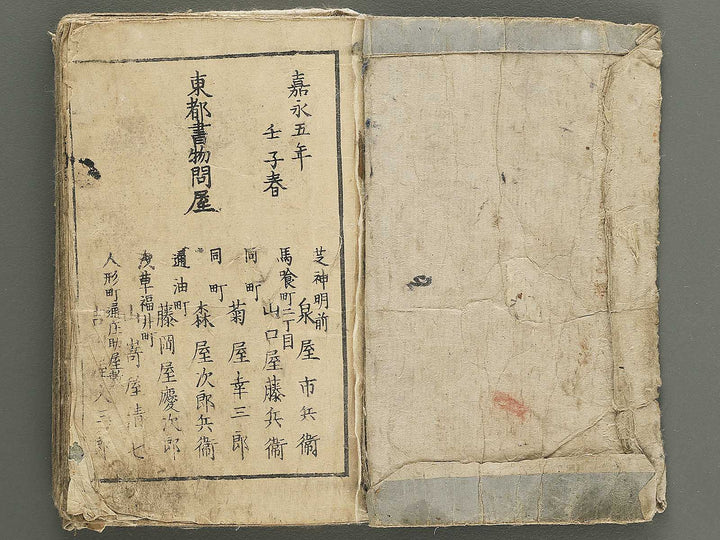 嘉永五年
壬子春
東都書物問屋
芝神明前
泉屋市兵衞
馬喰町二丁目
山口屋藤兵衞
同町
菊屋幸三郎
同町
森屋次郎兵衞
通油町
藤岡屋慶次郎
浅草福井町
山嵜屋清七
人形町通